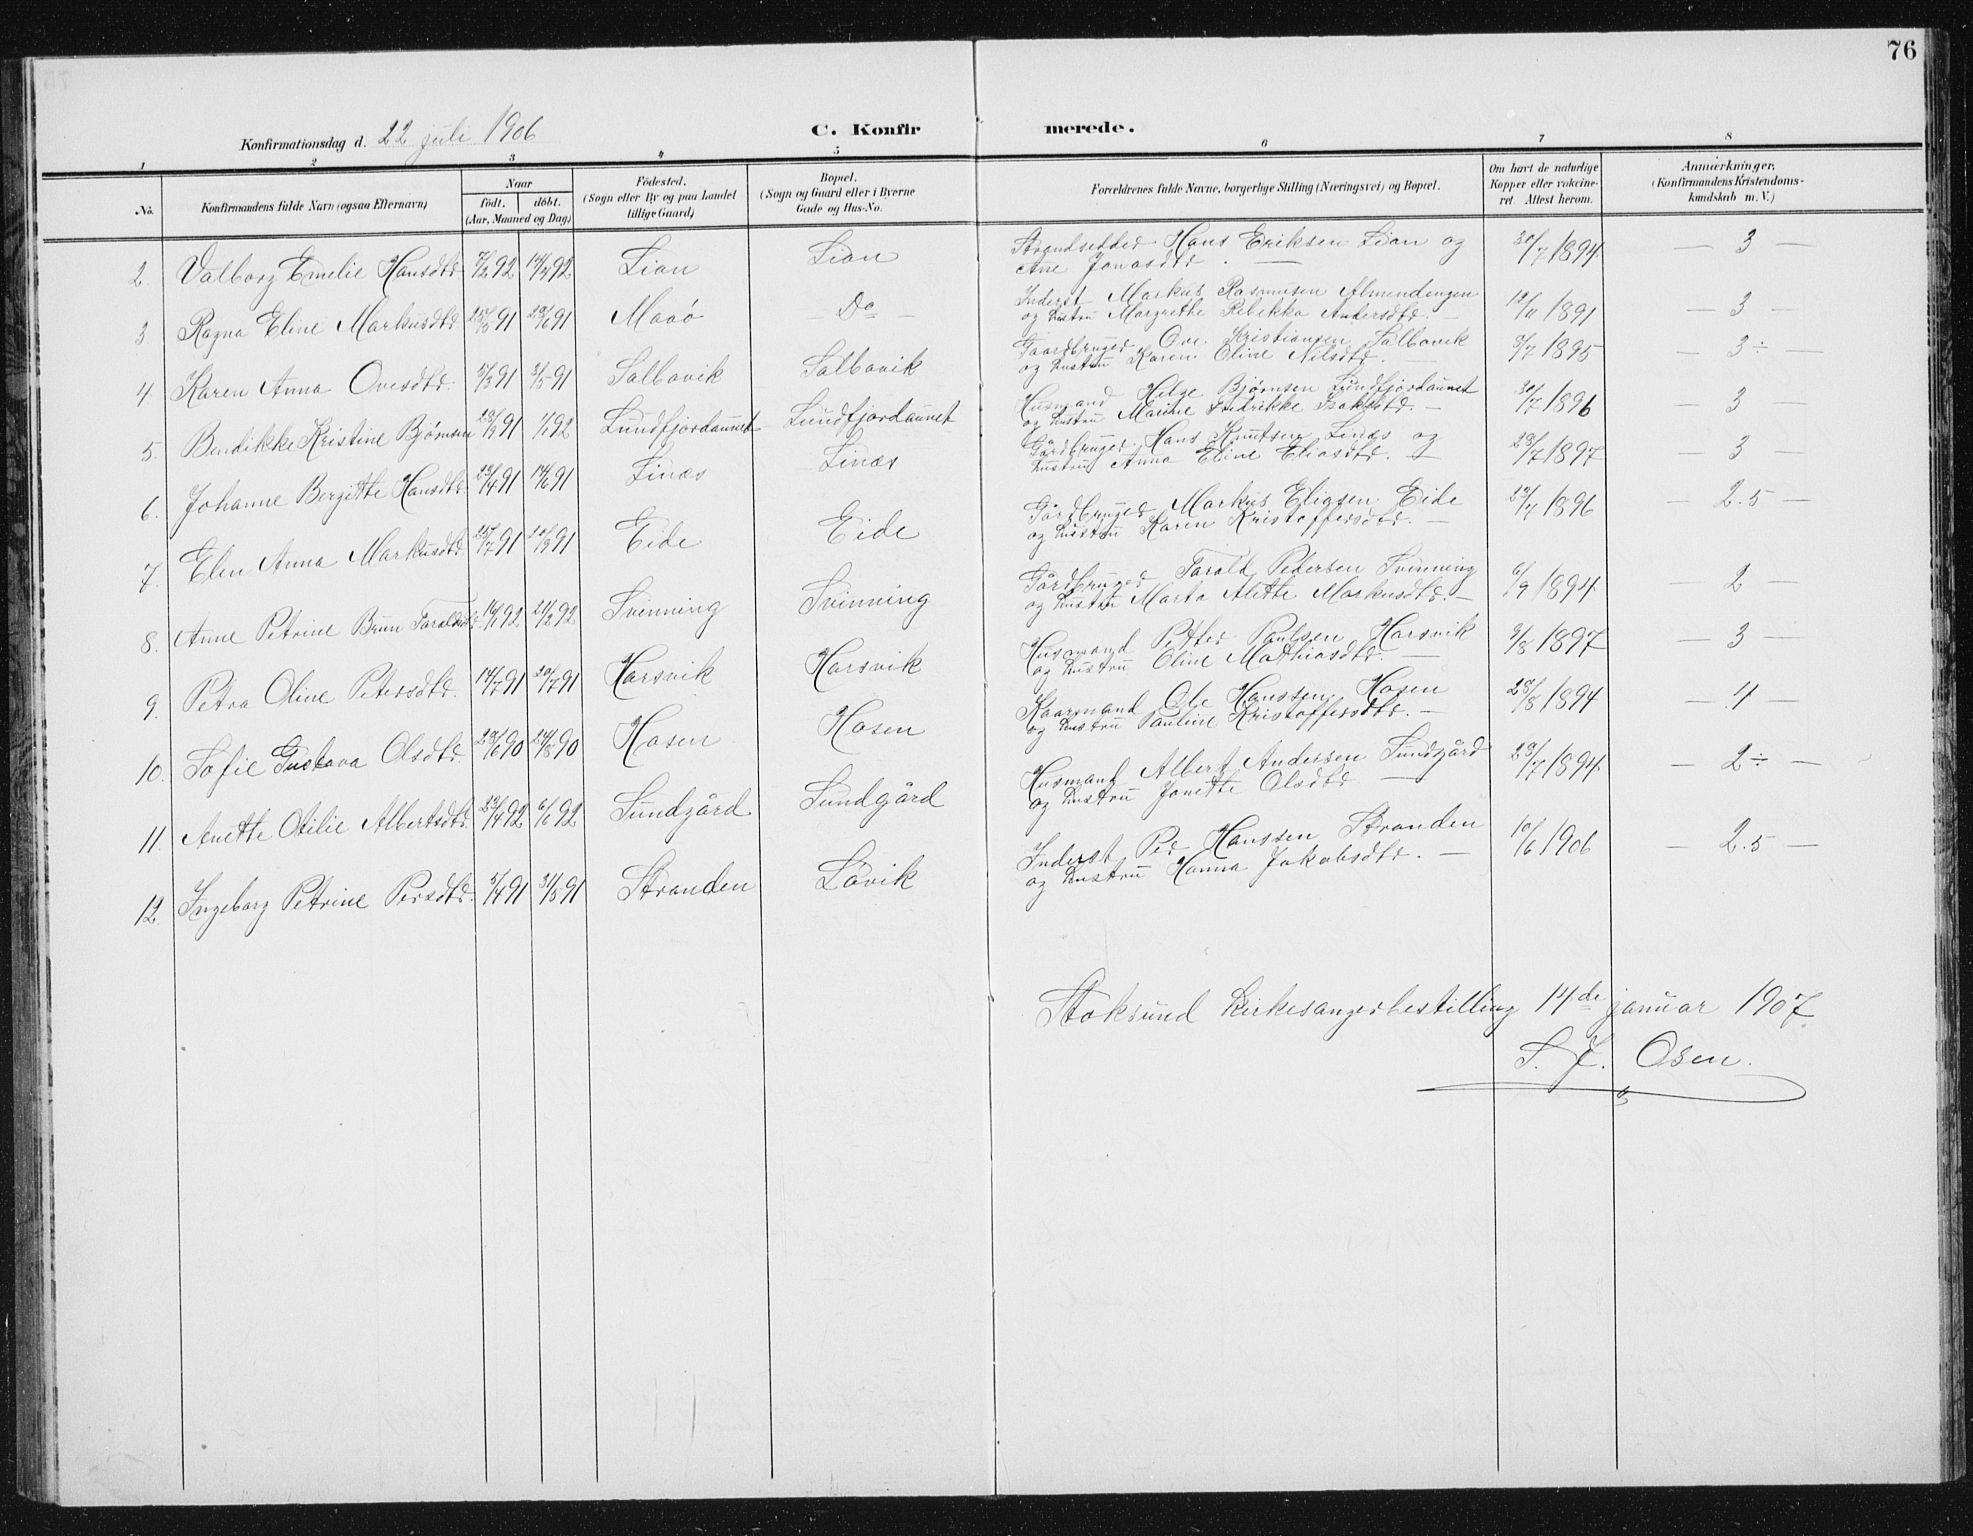 76
Konfirmationsdag d. 22 juli 1906
C. Konfirmerede.
1 2 3 4 5 6 7 8
No. Konfirmandens fulde Navn (ogsaa Efternavn) Naar født. døbt. (Aar, Maaned og Dag) Fødested. (Sogn eller By og paa Landet tillige Gaard) Bopæl. (Sogn og Gaard eller i Byerne Gade og Hus-No. Forældrenes fulde Navne, borgerlige Stilling (Næringsvei) og Bopæl. Om havt de naturlige Kopper eller vakcineret. Attest herom. Anmærkninger. (Konfirmandens Kristendomskundskab m. V.)
2 Valborg Emelie Hansdtd. 92 14/4 92 Lian Lian Strandsedder Hans Eriksen Lian og 20/7 1894 — 3 —
Ane Jonasdtd. —
3 Ragna Eline Markusdtd 25/5 91 28/6 91 Maaø — Do — Inderst Markus Rasmusen Almendingen 12/11 1891 — 3 —
og hustru Margrethe Rebekka Andersdtd. —
4. Karen Anna Ovesdtd. 3/3 91 3/5 91 Salbovik Salbovik Gaardbruger Ove Kristiansen Salbovik 3/7 1895 — 3 ÷ —
og hustru Karen Oline Nilsdtd. —
5. Bendikke Kristine Bjørnsen 23/9 91 1/1 92 Sundfjordaunet Sundfjordaunet Husmand Helge Bjørnsen Sundfjordaunet 30/7 1896 — 3 —
og hustru Fredrikke Isaksdtd. —
6. Johanne Bergitte Hansdtd. 23/4 91 14/6 91 Linæs Linæs Gårdbruger Hans Knutsen Linæs og 28/7 1897 — 3 —
hustru Anna Eline Eliasdtd. —
7. Elen Anna Markusdtd. 25/7 91 20/9 91 Eide Eide Gårdbruger Markus Eliasen Eide 29/7 1896 — 2.5 —
og hustru Karen Kristoffersdtd. —
8. Anne Petrine Brun Taraldsdtd. 16/1 92 21/2 92 Svinning Svinning Gårdbruger Tarald Pedersen Svinning 6/9 1894 — 2 —
og hustru Marta Alette Markusdtd. —
9. Petra Oline Petersdtd. 14/7 91 20/7 91 Harsvik Harsvik Husmand Petter Paulsen Harsvik 3/8 1897 — 3 —
og hustru Oline Mathiasdtd. —
10. Sofie Gustava Olsdtd. 29/6 90 24/8 90 Hosen Hosen Kaarmand Ole Hanssen Hosen 28/8 1894 — 4 —
og hustru Pauline Kristoffersdtd. —
11. Anette Otilie Albertsdtd. 29/4 92 6/6 92 Sundgård Sundgård Husmand Albert Andersen Sundgård 28/7 1894 — 2 ÷ —
og hustru Janette Olsdtd —
12. Ingeborg Petrine Persdtd. 5/4 91 31/5 91 Stranden Løvik Inderst Per Hanssen Stranden 10/6 1906 — 2.5 —
og hustru Hanna Jakobsdtd. —
Stoksund Kirkesangerbestilling 14de januar 1907
S. J. Osen.